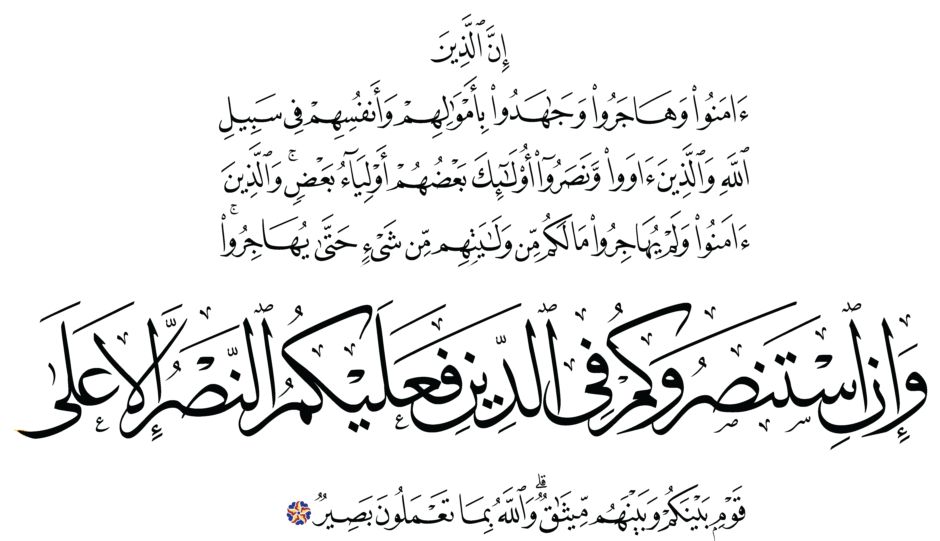 إِنَّ ٱلَّذِينَ
ءَامَنُوا۟ وَهَاجَرُوا۟ وَجَـٰهَدُوا۟ بِأَمْوَٰلِهِمْ وَأَنفُسِهِمْ فِى سَبِيلِ
ٱللَّهِ وَٱلَّذِينَ ءَاوَوا۟ وَّنَصَرُوٓا۟ أُو۟لَـٰٓئِكَ بَعْضُهُمْ أَوْلِيَآءُ بَعْضٍ ۚ وَٱلَّذِينَ
ءَامَنُوا۟ وَلَمْ يُهَاجِرُوا۟ مَا لَكُم مِّن وَلَـٰيَتِهِم مِّن شَىْءٍ حَتَّىٰ يُهَاجِرُوا۟ ۚ
وَإِنِ ٱسْتَنصَرُوكُمْ فِى ٱلدِّينِ فَعَلَيْكُمُ ٱلنَّصْرُ إِلَّا عَلَىٰ
قَوْمٍۭ بَيْنَكُمْ وَبَيْنَهُم مِّيثَـٰقٌ ۗ وَٱللَّهُ بِمَا تَعْمَلُونَ بَصِيرٌ